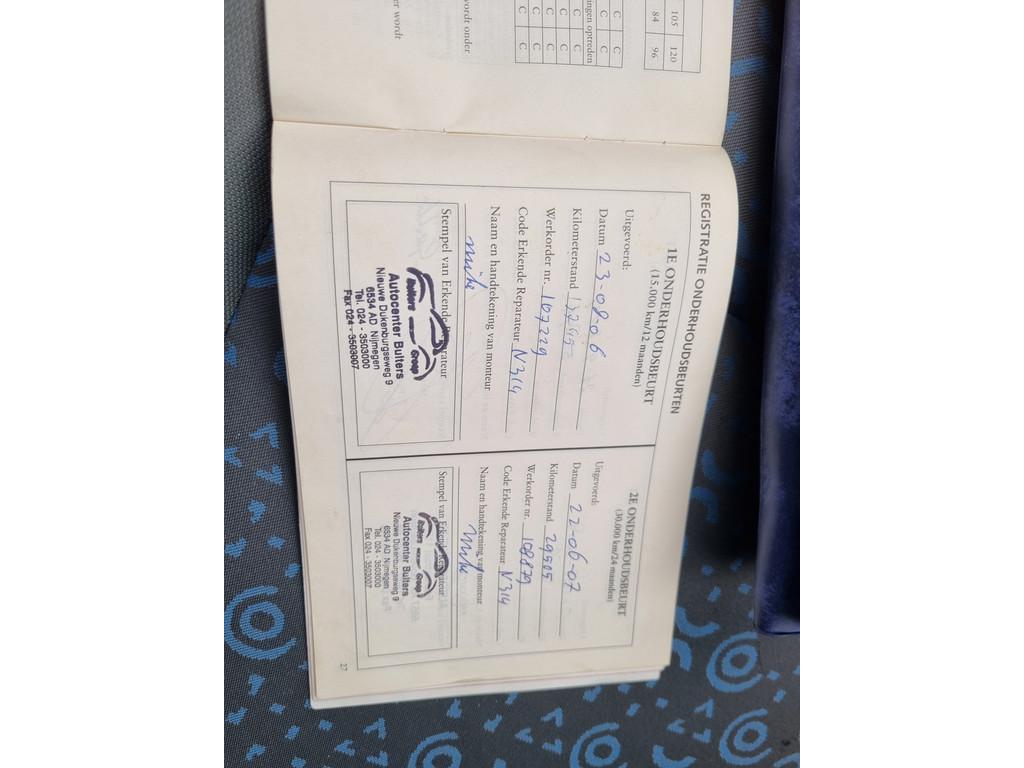 er wordt
wordt onder
ingen optreden
C C
C C
C C
C C
C C
C C
C C
84 96
105 120
REGISTRATIE ONDERHOUDSBEURTEN
1E ONDERHOUDSBEURT
(15.000 km/12 maanden)
Uitgevoerd:
Datum 23-08-06
Kilometerstand
Werkorder nr. 107229
Code Erkende Reparateur N314
Naam en handtekening van monteur
Stempel van Erkende Reparateur
Bulters Groep
Autocenter Bulters
Nieuwe Dukenburgseweg 9
6534 AD Nijmegen
Tel. 024 - 3503000
Fax 024 - 3503007
2E ONDERHOUDSBEURT
(30.000 km/24 maanden)
Uitgevoerd:
Datum 22-06-07
Kilometerstand 29505
Werkorder nr. 108879
Code Erkende Reparateur N314
Naam en handtekening van monteur
Stempel van Erkende Reparateur
Bulters Groep
Autocenter Bulters
Nieuwe Dukenburgseweg 9
6534 AD Nijmegen
Tel. 024 - 3503000
Fax 024 - 3503007
27